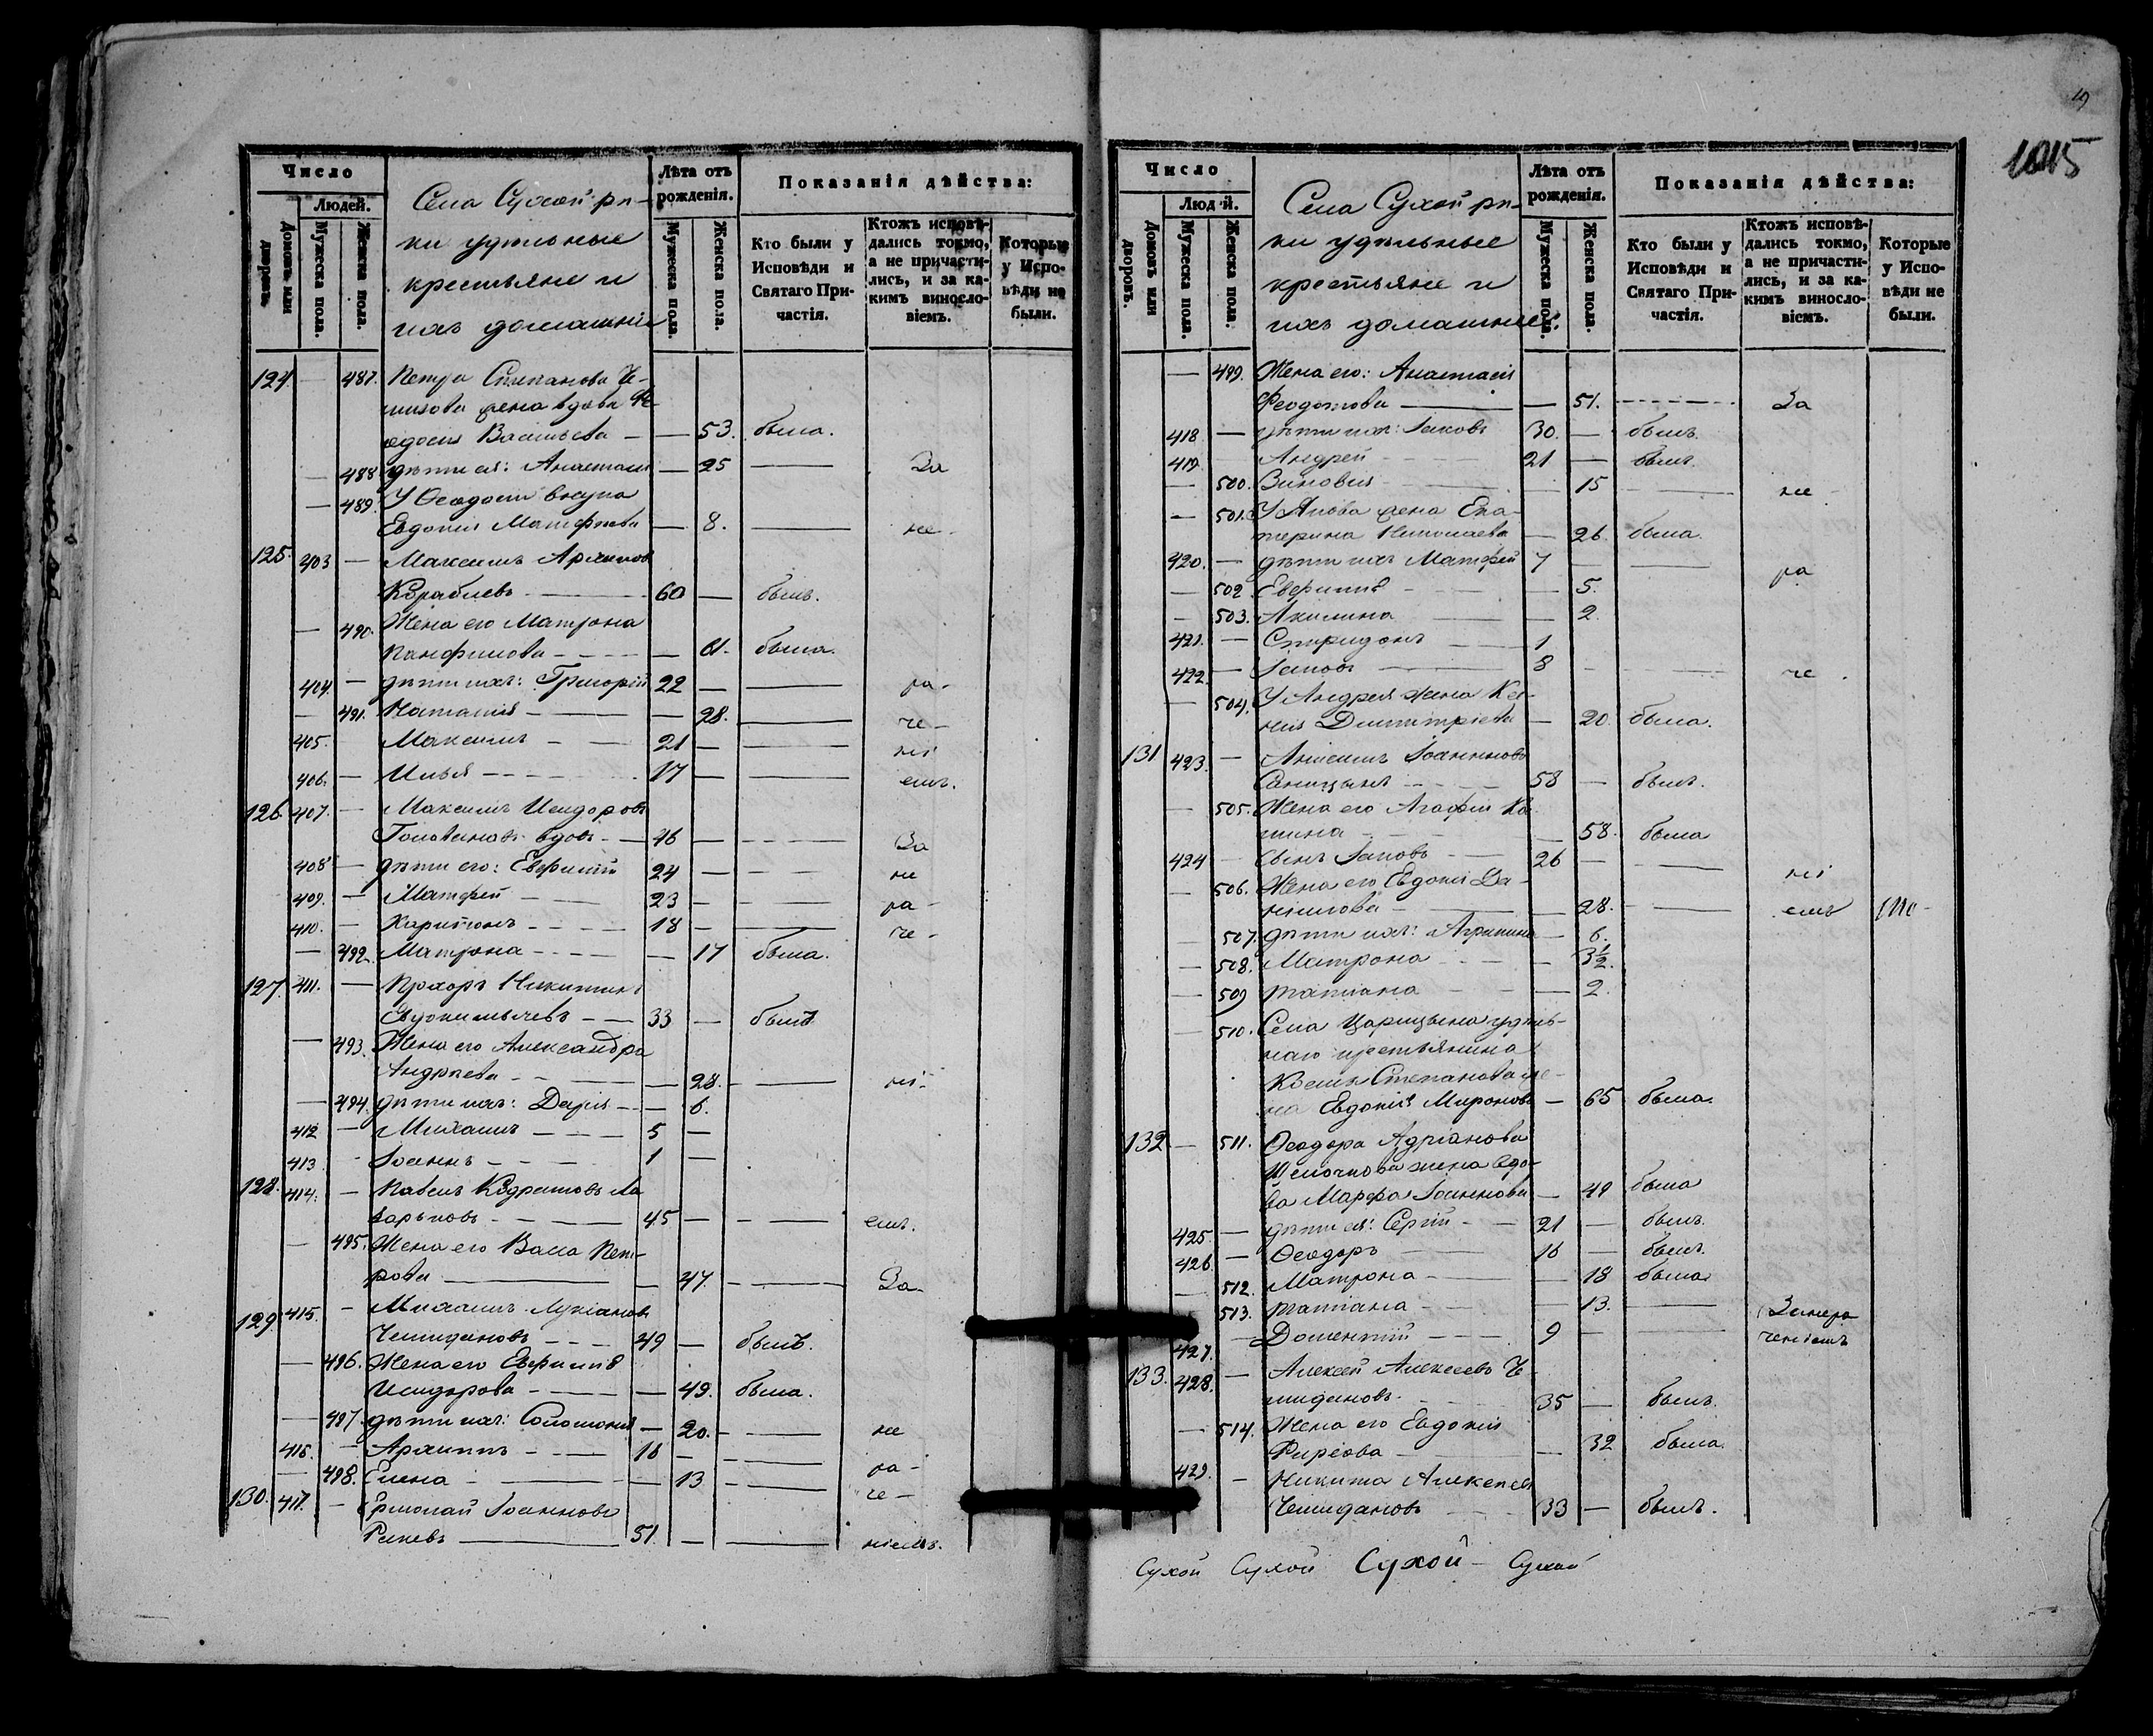 Число
Людей.
Домовъ или дворовъ.
Мужеска пола.
Женска пола.
Села Сухой рѣ-
ки удѣльные
крестьяне и
ихъ домашніе
Лѣта отъ рожденія.
Мужеска пола.
Женска пола.
Показанія дѣйства:
Кто были у Исповѣди и Святаго Причастія.
Ктожъ исповѣдались токмо, а не причастились, и за какимъ винословіемъ.
Которые у Исповѣди не были.
124 — 487. Петра Степанова Че-
жена вдова Ѳе-
одосія Васильева — — 53. была.
— 488 дѣти ея: Анастасія — 25 — За
— 489. У Ѳеодосіи внука
Евдокія Матфѣева — 8. — не-
125. 403 — Максимъ Архиповъ
Кораблевъ — 60 — былъ.
— 490. Жена его Матрона
Панфилова — — 61. была.
404. — дѣти ихъ: Григорій 22 — — ра-
— 491. Наталія — — 28. — че-
405. Максимъ — 21 — — ні
406. — Илья — 17 — — емъ.
126. 407. — Максимъ Исидоровъ
вдовъ — 46 — — За
408 — дѣти его: Евфимій 24 — — не
409. — Матфей — 23 — — ра-
410. — Харитонъ — 18 — — че-
— 492. Матрона — — 17 была.
127 411. — Прохоръ Никитинъ
33 — былъ
— 493. Жена его Александра
Андреева — — 28. — ні-
— 494. дѣти ихъ: Дарія — — 6.
412 — Михаилъ — 5 —
413 Іоаннъ — 1 —
128. 414. — Павелъ Кодратовъ Ла-
зарьковъ — 45 — — емъ.
— 495. Жена его Васса Пет-
рова — — 47. — За-
129. 415. — Михаилъ Лукіановъ
Чемидановъ — 49 — былъ.
— 496. Жена его Евфимія
Исидорова — — 49. была.
— 497. дѣти ихъ: Соломонія — 20. — не
416. — Архиппъ — 16 — — ра-
— 498. Елена — — 13 — че-
130. 417. — Ермолай Іоанновъ
51. — — ніемъ.
1015
Число
Людей.
Домовъ или дворовъ.
Мужеска пола.
Женска пола.
Села Сухой рѣ-
ки удѣльные
крестьяне и
ихъ домашніе
Лѣта отъ рожденія.
Мужеска пола.
Женска пола.
Показанія дѣйства:
Кто были у Исповѣди и Святаго Причастія.
Ктожъ исповѣдались токмо, а не причастились, и за какимъ винословіемъ.
Которые у Исповѣди не были.
— 499. Жена его: Анастасія
Ѳеодотова — — 51. — За
418. — дѣти ихъ: Іаковъ 30. — былъ.
419. Андрей — 21 — былъ.
— 500. Зиновія — — 15 — не-
— 501. У Якова жена Ека-
терина Николаева — 26. была.
420. — дѣти ихъ Матфей 7 — — ра
— 502 Евфимія — — 5.
— 503. Акилина — — 2.
421. — Спиридонъ — 1
422. — Іаковъ — 8 — — че.
— 504. У Андрея жена Ксе-
нія Димитріева — 20. была.
131 423. — Анисимъ Іоанновъ
58 — былъ.
— 505. Жена его Агафія
— 58. была
424 — сынъ Іаковъ — 26 — — ні
— 506. Жена его Евдокія Да-
ніилова — — 28. — емъ
— 507. дѣти ихъ: Агрипина — 6.
— 508. Матрона — — 3½.
— 509 Татіана — — 2.
— 510. Села Царицына удѣль-
наго крестьянина
Козьмы Степанова же-
на Евдокія Миронова — 65 была.
132 — 511. Ѳеодора Адріанова
жена вдо-
ва Марфа Іоаннова — 49 была
425. — дѣти ея: Сергій — 21 — былъ.
426. — Ѳеодоръ — 16 — былъ.
— 512. Матрона — — 18 была
— 513. Татіана — — 13. — Занера
427. — Дометій — 9 — — ченіемъ
133. 428. — Алексѣй Алексеевъ Че-
мидановъ — 35 — былъ.
— 514. Жена его Евдокія
Фирсова — — 32 была.
429. — Никита Алексѣевъ
Чемидановъ — 33 — былъ.
Сухой Сухой Сухой - Сухой